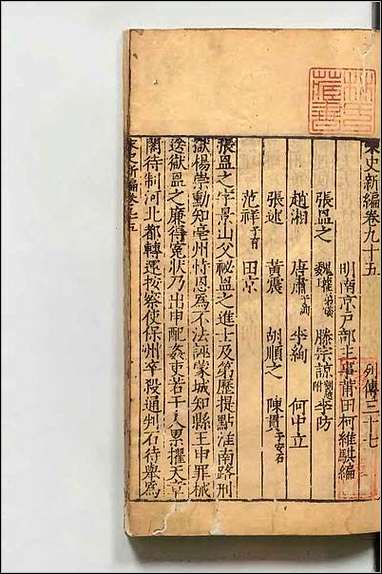 宋史新編卷九十五
列傳三十七
明南京戶部主事莆田柯維騏編
張盥之 魏瓘 滕宗諒 附 李防
趙湘 唐肅 李絢 何中立
張述 黃震 胡順之 陳貫
范祥 田京
張盥之字景山父祕盥之進士及第歷提點淮南路刑
獄楊崇勳知亳州恃恩為不法誣蒙城知縣王申罪械
送獄盥之廉得冤狀乃出申配姦吏若干人累擢天章
閣待制河北都轉運按察使保州卒殺通判石待舉為